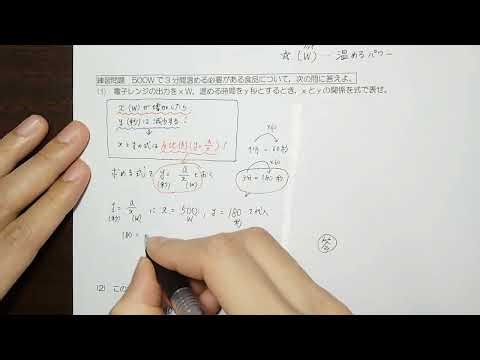 ☆ (W) … 温めるパワー
練習問題 500Wで3分間温める必要がある食品について，次の問に答えよ。
(1) 電子レンジの出力をxW，温める時間をy秒とするとき，xとyの関係を式で表せ。
x (W) が増加したら
y (秒) は減少する！
xとyの式は反比例 (y=a/x)！
×60
1分=60秒
×60
3分=180秒
求める式を y=a/x とおく
(秒) (W)
y=a/x に x=500, y=180 を代入
(秒) (W) W 秒
180 =
(2) この